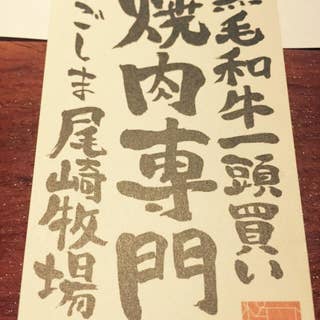 黒毛和牛一頭買い
焼肉専門
かごしま尾崎牧場